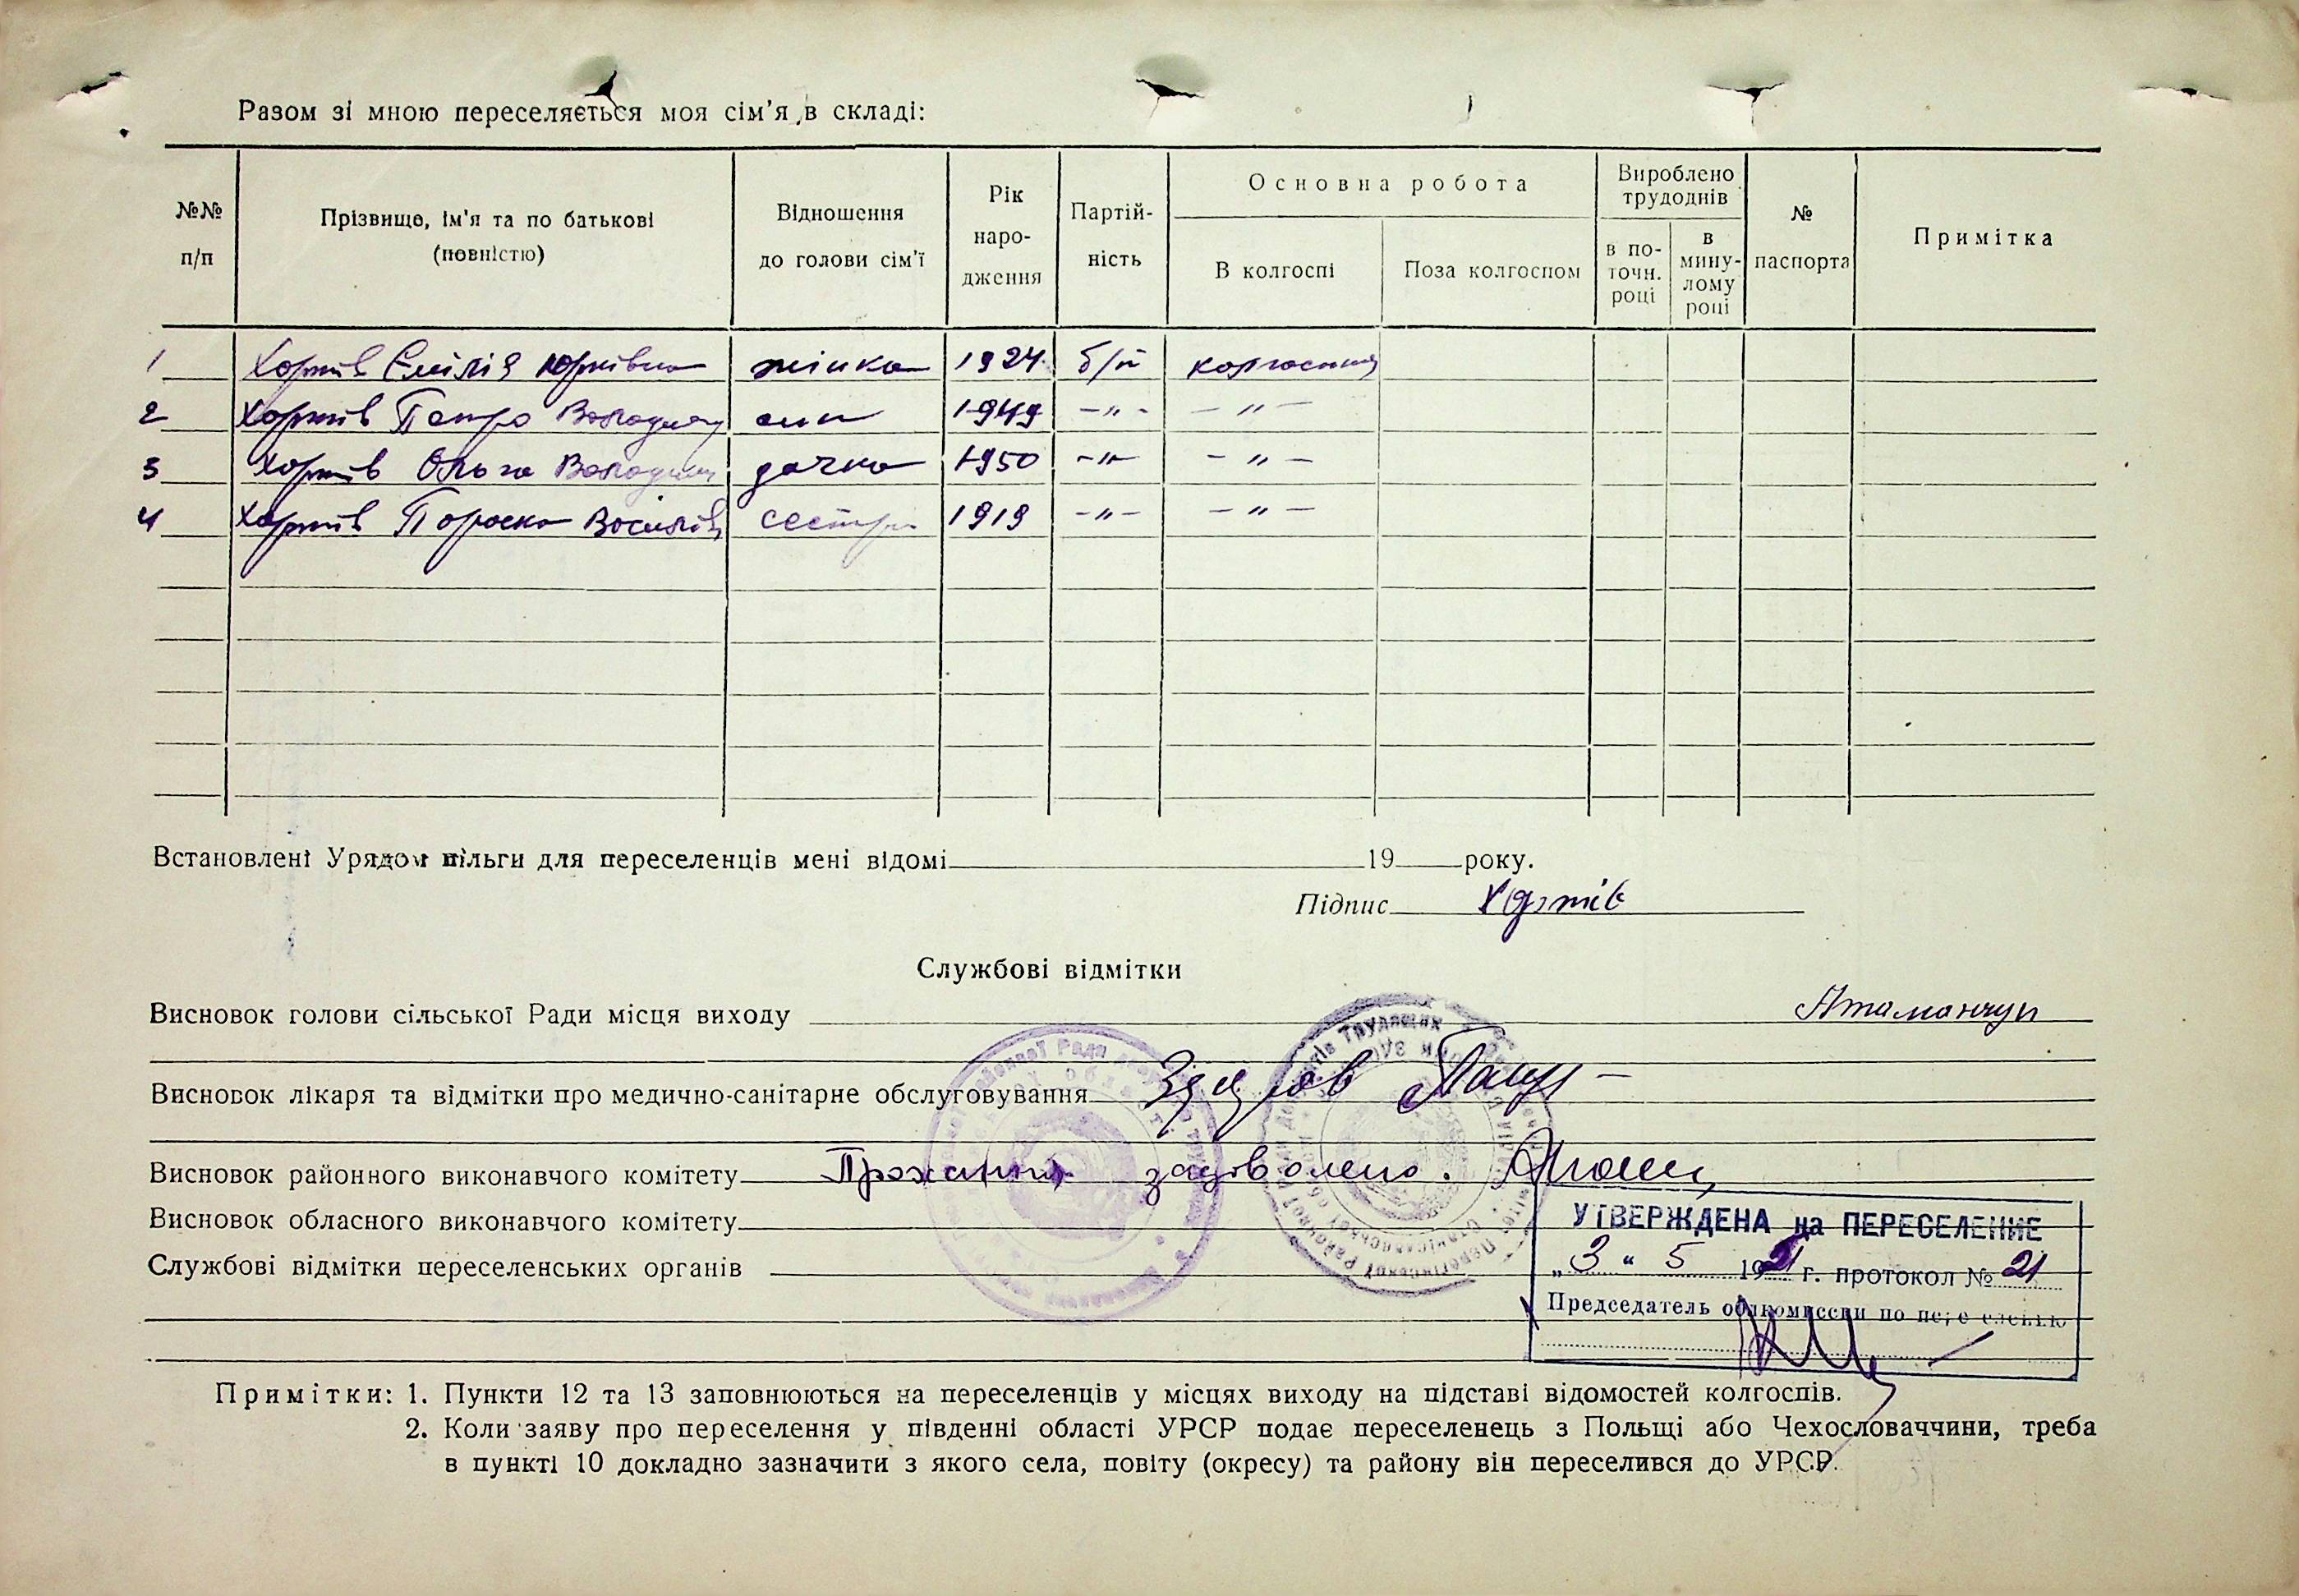 Разом зі мною переселяється моя сім'я в складі:
№№ п/п
Прізвище, ім'я та по батькові (повністю)
Відношення до голови сім'ї
Рік народження
Партійність
Основна робота
В колгоспі
Поза колгоспом
Вироблено трудоднів
в поточн. році
в минулому році
№ паспорта
Примітка
1 Хортів Емілія Юрківна жінка 1924 б/п
2 Хортів Петро син 1949 -"- -"-
3 Хортів Ольга дочка 1950 -"- -"-
4 Хортів Параска сестра 1919 -"- -"-
Встановлені Урядом пільги для переселенців мені відомі 19 року.
Підпис Хортів
Службові відмітки
Висновок голови сільської Ради місця виходу Атаманчук
Висновок лікаря та відмітки про медично-санітарне обслуговування
Висновок районного виконавчого комітету Прохання задоволено.
Висновок обласного виконавчого комітету
Службові відмітки переселенських органів
УТВЕРЖДЕНА на ПЕРЕСЕЛЕНИЕ
„3" 5 1951 г. протокол № 21
Председатель облкомиссии по переселению
Примітки: 1. Пункти 12 та 13 заповнюються на переселенців у місцях виходу на підставі відомостей колгоспів.
2. Коли заяву про переселення у південні області УРСР подає переселенець з Польщі або Чехословаччини, треба
в пункті 10 докладно зазначити з якого села, повіту (окресу) та району він переселився до УРСР.